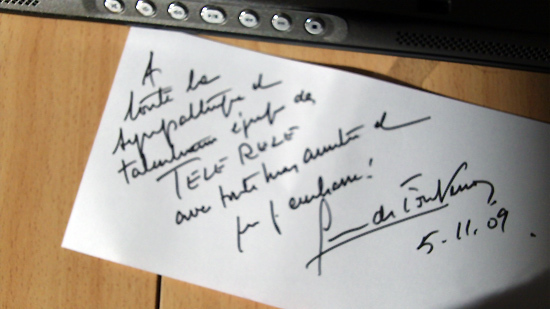 A
toute la
sympathique et
talentueuse équipe de
TELE RUZE
avec toute mon amitié et
5.11.09.